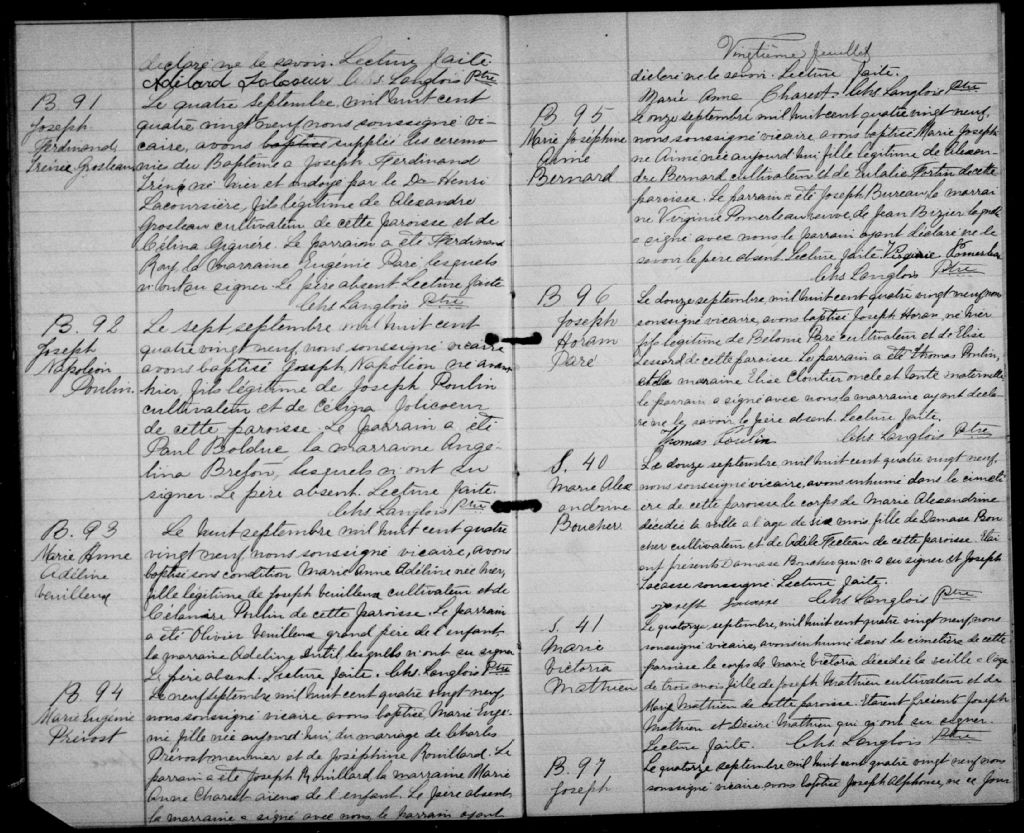 déclaré ne le savoir. Lecture faite
Adélard Jolicoeur Chs Langlois Ptre
B. 91
Joseph
Ferdinand
Irénée Grosleau
Le quatre septembre, mil huit cent
quatre vingt neuf, nous soussigné vi-
caire, avons baptisé suppléé les ceremo-
nies du Baptême a Joseph Ferdinand
né hier et ondoyé par le Dr Henri
Lacoursière, fils legitime de Alexandre
Grosleau cultivateur de cette paroisse et de
Célina Giguère. Le parrain a été Ferdinand
Roy, la marraine Eugénie Paré lesquels
n'ont su signer. Le père absent Lecture faite
Chs Langlois Ptre
B. 92
Joseph
Napoléon
Poulin.
Le sept septembre mil huit cent
quatre vingt neuf, nous soussigné vicaire
avons baptisé Joseph Napoléon né avant
hier, fils légitime de Joseph Poulin
cultivateur et de Célina Jolicoeur
de cette paroisse. Le parrain a été
Paul Bolduc, la marraine Ange-
lina Breton, lesquels n'ont su
signer. Le père absent. Lecture faite.
Chs Langlois Ptre
B. 93
Marie Anne
Adéline
Veuilleux
Le huit septembre mil huit cent quatre
vingt neuf, nous soussigné vicaire, avons
baptisé sous condition Marie Anne Adéline née hier,
fille legitime de Joseph Veuilleux cultivateur et de
Poulin de cette paroisse. Le parrain
a été Olivier Veuilleux grand père de l'enfant
la marraine Adeline lesquels n'ont su signer
Le père absent. Lecture faite. Chs Langlois Ptre
B. 94
Marie Eugénie
Prévost
Le neuf septembre mil huit cent quatre vingt neuf,
nous soussigné vicaire avons baptisé Marie Euge-
nie fille née aujourd'hui du mariage de Charles
Prévost meunier et de Joséphine Rouillard. Le
parrain a été Joseph Rouillard la marraine Marie
Anne Charest aieux de l'enfant. Le père absent,
la marraine a signé avec nous, le parrain ayant
Vingtième feuillet
déclaré ne le savoir. Lecture faite.
Marie Anne Charest. Chs Langlois Ptre
B. 95
Marie Joséphine
Aimé
Bernard
Le onze septembre, mil huit cent quatre vingt neuf,
nous soussigné vicaire avons baptisé Marie Joseph-
ne Aimé née aujourd'hui fille legitime de Alexan-
dre Bernard cultivateur et de Eulalie Fortin de cette
paroisse. Le parrain a été Joseph Bureau, la marrai-
ne Virginie Pomerleau veuve de Jean Bizier laquelle
a signé avec nous, le parrain ayant déclaré ne le
savoir, le père absent. Lecture faite. Virginie Pomerleau
Chs Langlois Ptre
B 96
Joseph
Horam
Paré
Le douze septembre, mil huit cent quatre vingt neuf, nous
soussigné vicaire, avons baptisé Joseph Horam, né hier
fils legitime de Bélonie Paré cultivateur et de Elise
Lessard de cette paroisse Le parrain a été Thomas Poulin,
et la marraine Elise Cloutier oncle et tante maternelle
le parrain a signé avec nous la marraine ayant décla-
ré ne le savoir le père absent. Lecture faite.
Thomas Poulin Chs Langlois Ptre
S. 40
Marie Alex
andrine
Boucher
Le douze septembre, mil huit cent quatre vingt neuf,
nous soussigné vicaire, avons inhumé dans le cimeti-
ère de cette paroisse le corps de Marie Alexandrine
décédée la veille a l'age de six mois fille de Damase Bou-
cher cultivateur et de Adèle Fecteau de cette paroisse. Etai-
ent présents Damase Boucher qui n'a su signer et Joseph
Lacasse soussigné. Lecture faite.
Joseph Chs Langlois Ptre
S. 41
Marie
Victoria
Mathieu
Le quatorze, septembre, mil huit cent quatre vingt neuf, nous
soussigné vicaire, avons inhumé dans le cimetière de cette
paroisse le corps de Marie Victoria décédée la veille a l'age
de trois mois fille de Joseph Mathieu cultivateur et de
Marie Mathieu de cette paroisse. Etaient présents Joseph
Mathieu et Désiré Mathieu qui n'ont su signer.
Lecture faite. Chs Langlois Ptre
B. 97
Joseph
Le quatorze septembre, mil huit cent quatre vingt neuf nous
soussigné vicaire, avons baptisé Joseph Alphonse, né ce jour